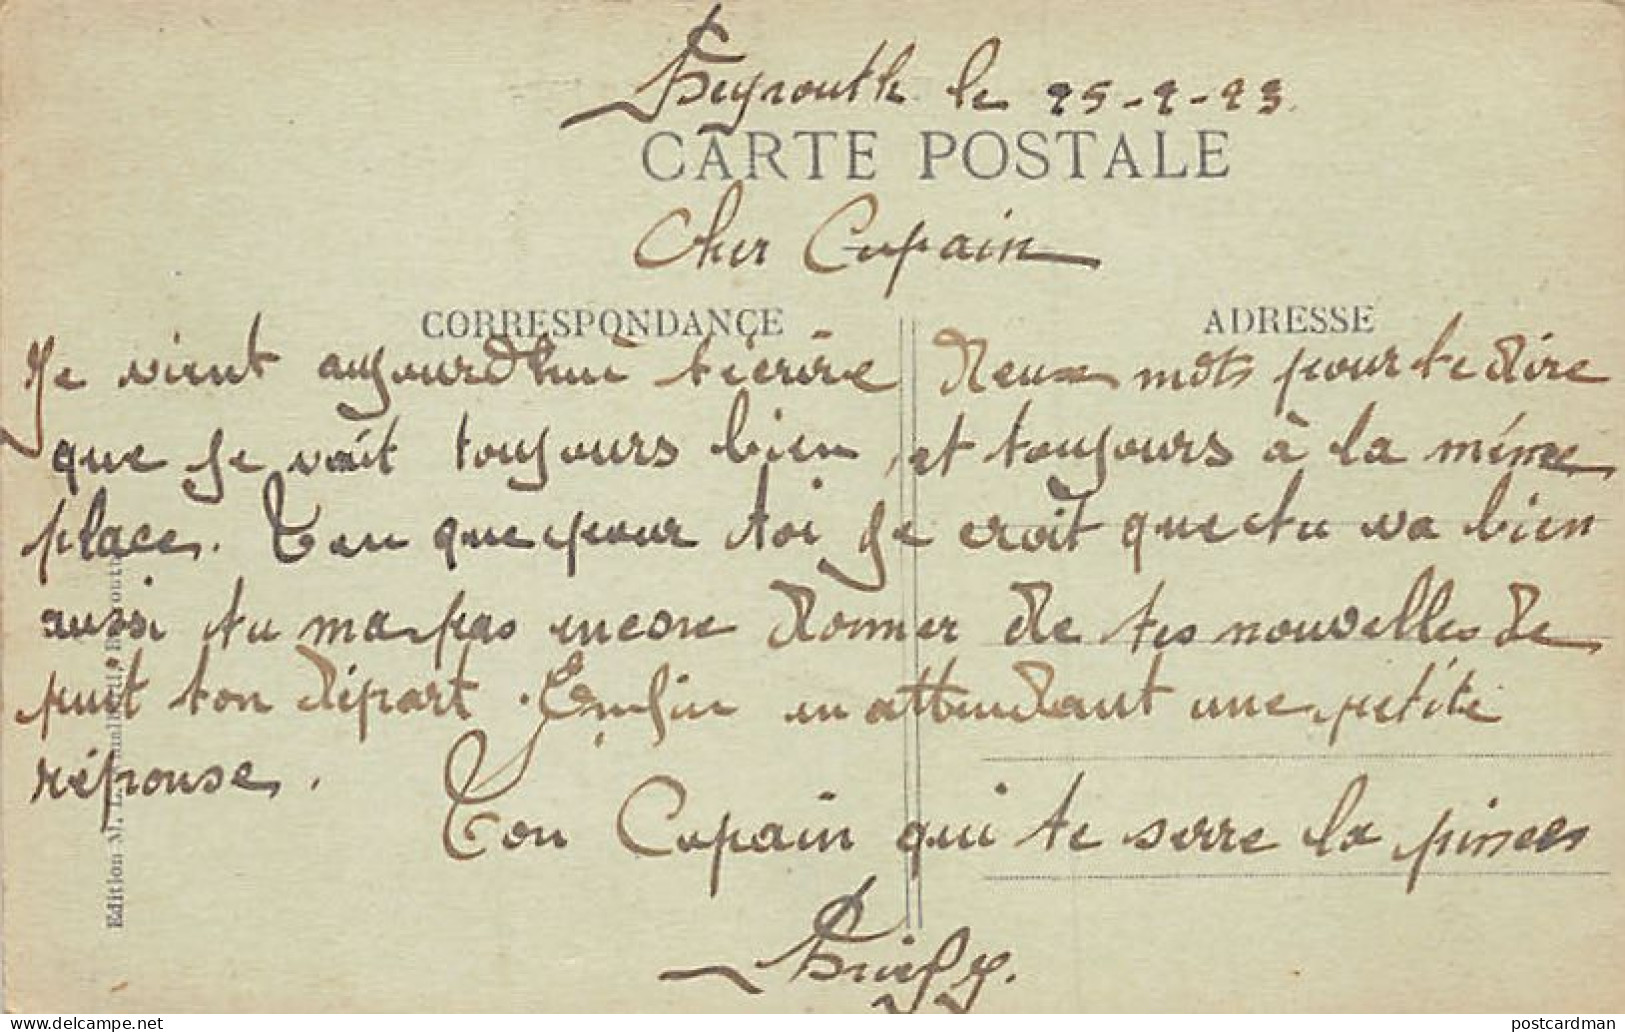 Beyrouth le 25-2-23.
CARTE POSTALE
Cher Copain
CORRESPONDANCE
ADRESSE
Je vient aujourdhui técrire deux mots pour te dire
que je vait toujours bien, et toujours à la même
place. Ten que pour toi je croit que tu va bien
aussi tu ma pas encore donner de tes nouvelles de
puit ton départ. Enfin en attendant une petite
réponse.
Ton Copain qui te serre la pinces
Edition M. L.
postcardman